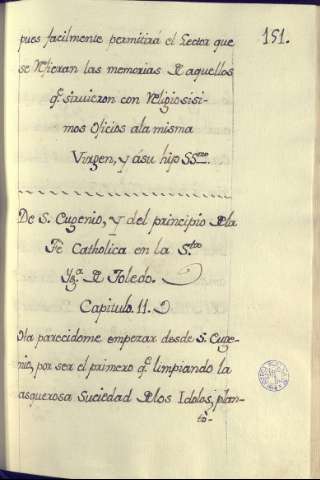 151.
pues facilmente permitirá el Lector que
se refieran las memorias de aquellos
q.e sirvieron con religiosisi-
mos Oficios ala misma
Virgen, y ásu hijo SS.mo
De S. Eugenio, y del principio de la
Fé Catholica en la S.ta
Ygl.a de Toledo.
Capitulo. 11.
Ha parecidome empezar desde S. Euge-
nio, por ser el primero q.e limpiando la
asquerosa Suciedad de los Idolos, plan-
tó-